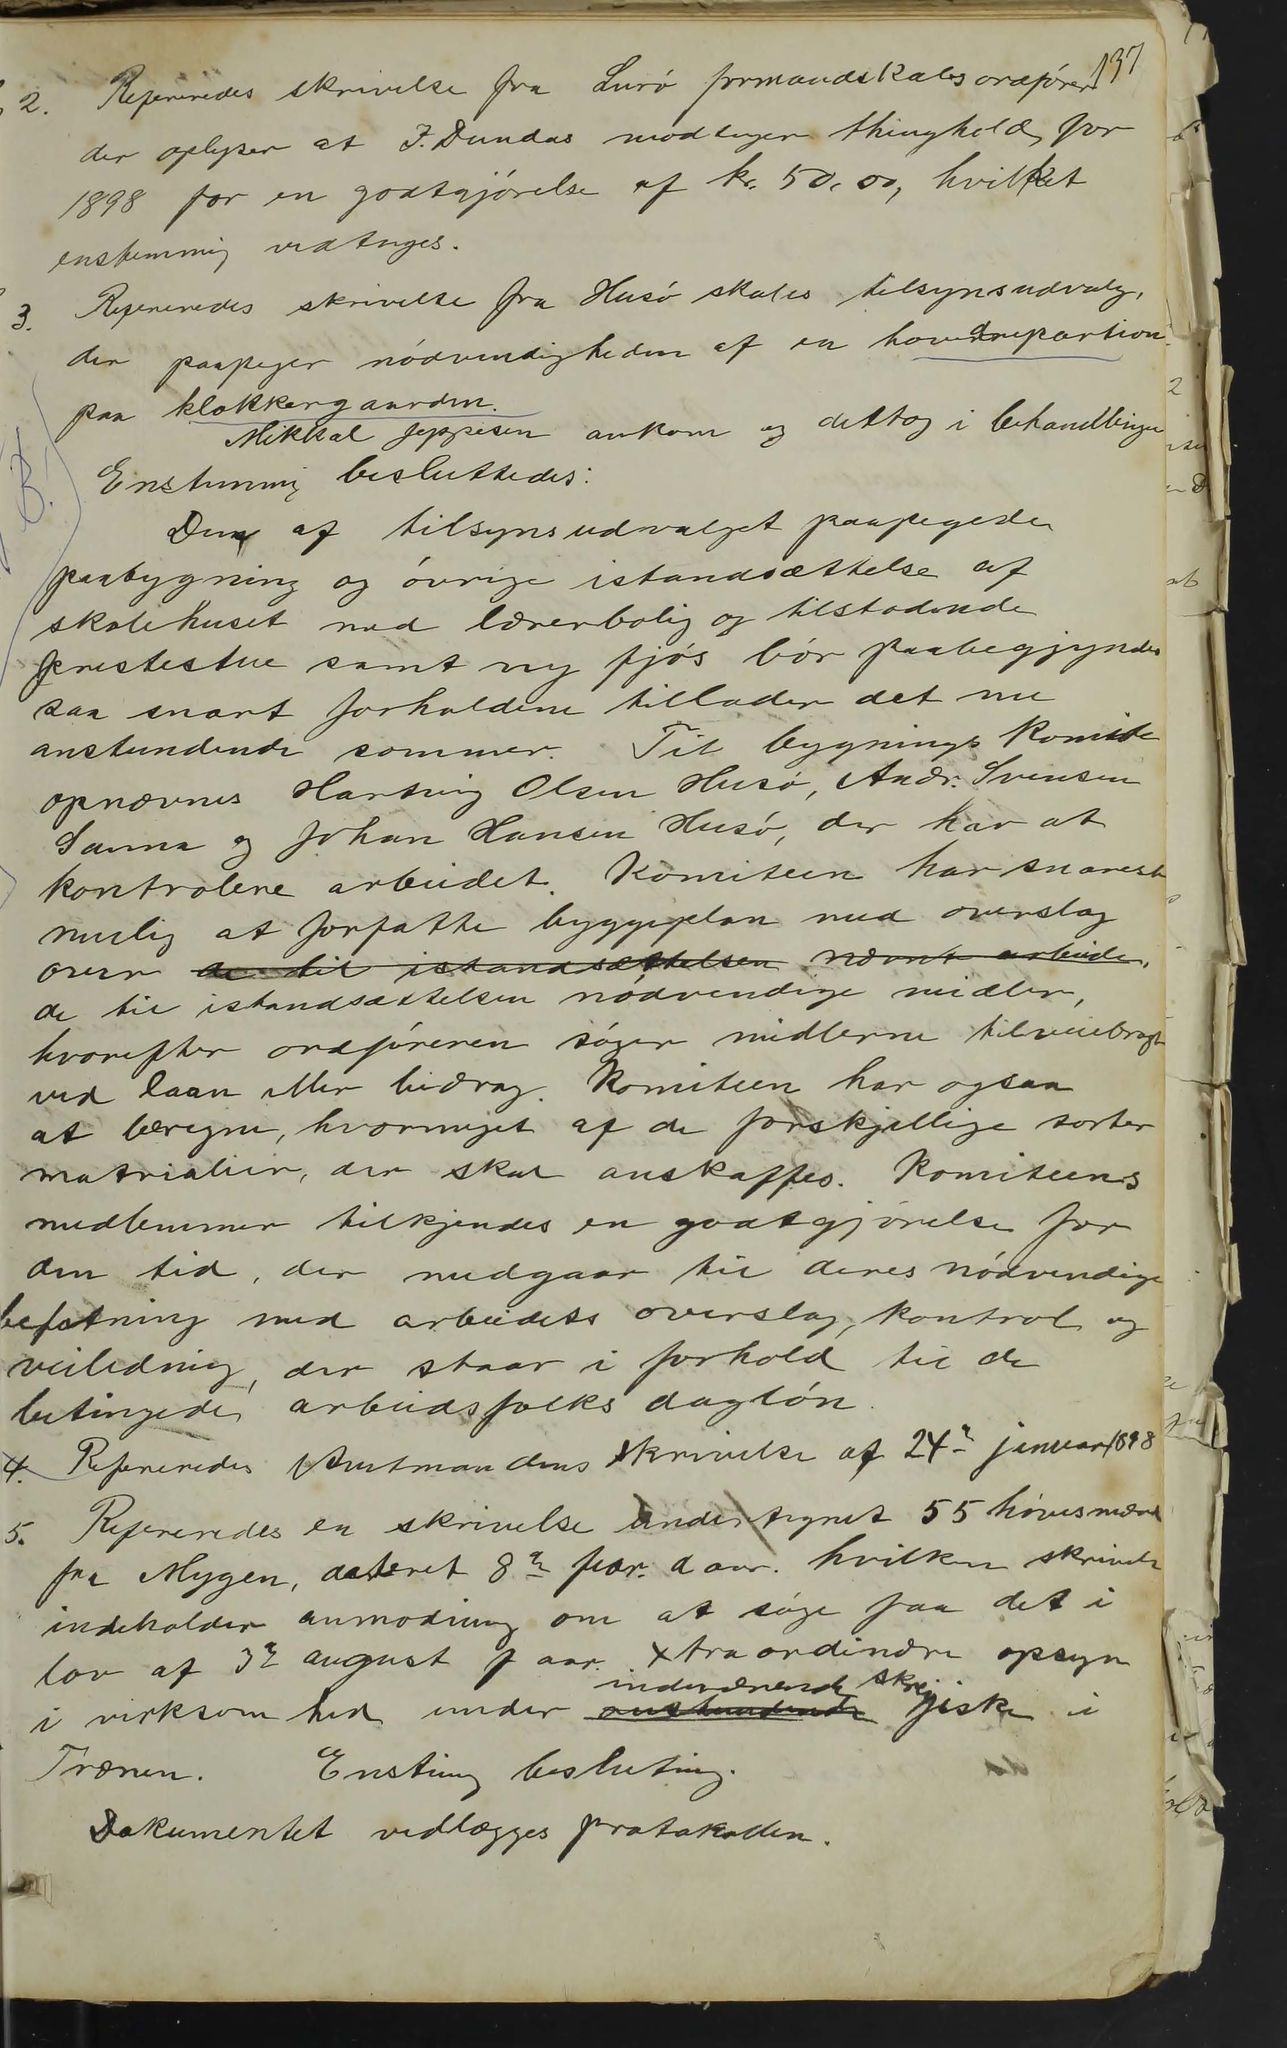 137
2. Refereredes skrivelse fra Lurö formandskabs ordförer
der oplyser at J. Dundas modtager thinghold for
1898 for en godtgjörelse af kr. 50,00, hvilket
enstemmig vedtages.
3. Refereredes skrivelse fra Husö skoles tilsynsudvalg,
der paapeger nödvendigheden af en hovedrepartion
paa klokkergaarden.
Mikkal Jeppesen ankom og deltog i behandlingen
Enstemmig besluttedes:
Den af tilsynsudvalget paapegede
paabygning og övrige istandsættelse af
skolehuset med lærerbolig og tilstødende
prestestue samt ny fjös bör paabegyndes
saa snart forholdene tillader det nu
anstundende sommer. Til bygningskomite
opnævnes Hartvig Olsen Husö, Andr. Svensen
Sanna og Johan Hansen Husö, der har at
kontrolere arbeidet. Komiteen har snarest
mulig at forfatte byggeplan med overslag
over de til istandsættelsen nævnt arbeide,
de til istandsættelsen nödvendige midler,
hvorefter ordföreren söger midlerne tilveiebragt
ved laan eller bidrag. Komiteen har ogsaa
at beregne, hvormeget af de forskjellige sorter
matrialier, der skal anskaffes. Komiteens
medlemmer tilkjendes en godtgjörelse for
den tid, der medgaar til deres nödvendige
befatning med arbeidets overslag, kontrol og
veiledning, der staar i forhold til de
betingede arbeidsfolks daglön.
4. Refereredes Amtmandens skrivelse af 24de januar 1898
5. Refereredes en skrivelse undertegnet 55 hövedsmænd
fra Mygen, dateret 8de febr. d aar. hvilken skrivelse
indeholder anmodning om at söge faa det i
lov af 3de august f aar. xtraordinære opsyn
i virksomhed under anstundende indeværende skreifiske i
Trænen. Enstemig beslutning.
Dokumentet vedlægges protokollen.